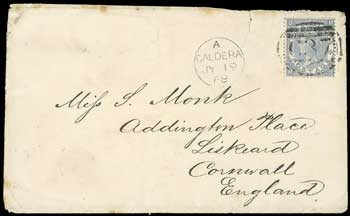 A
CALDERA
JY 19
68
Miss S. Monk
Addington Place
Liskeard
Cornwall
England